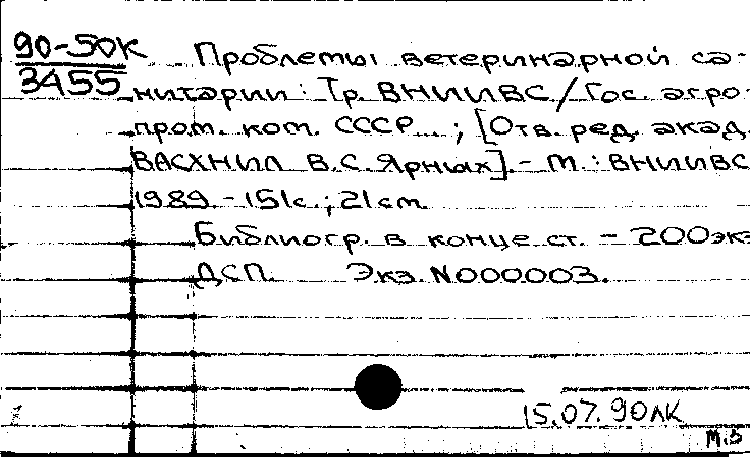 90-50К
3455
Проблемы ветеринарной са-
нитарии: Тр. ВНИИВС/Гос. агро-
пром. ком. СССР...; [Отв. ред. акад.
ВАСХНИЛ В.С. Ярных]. - М.: ВНИИВС
1989. - 151с.; 21см.
Библиогр. в конце ст. - 200экз
ДСП. Экз. N000003.
15.07.90ЛК